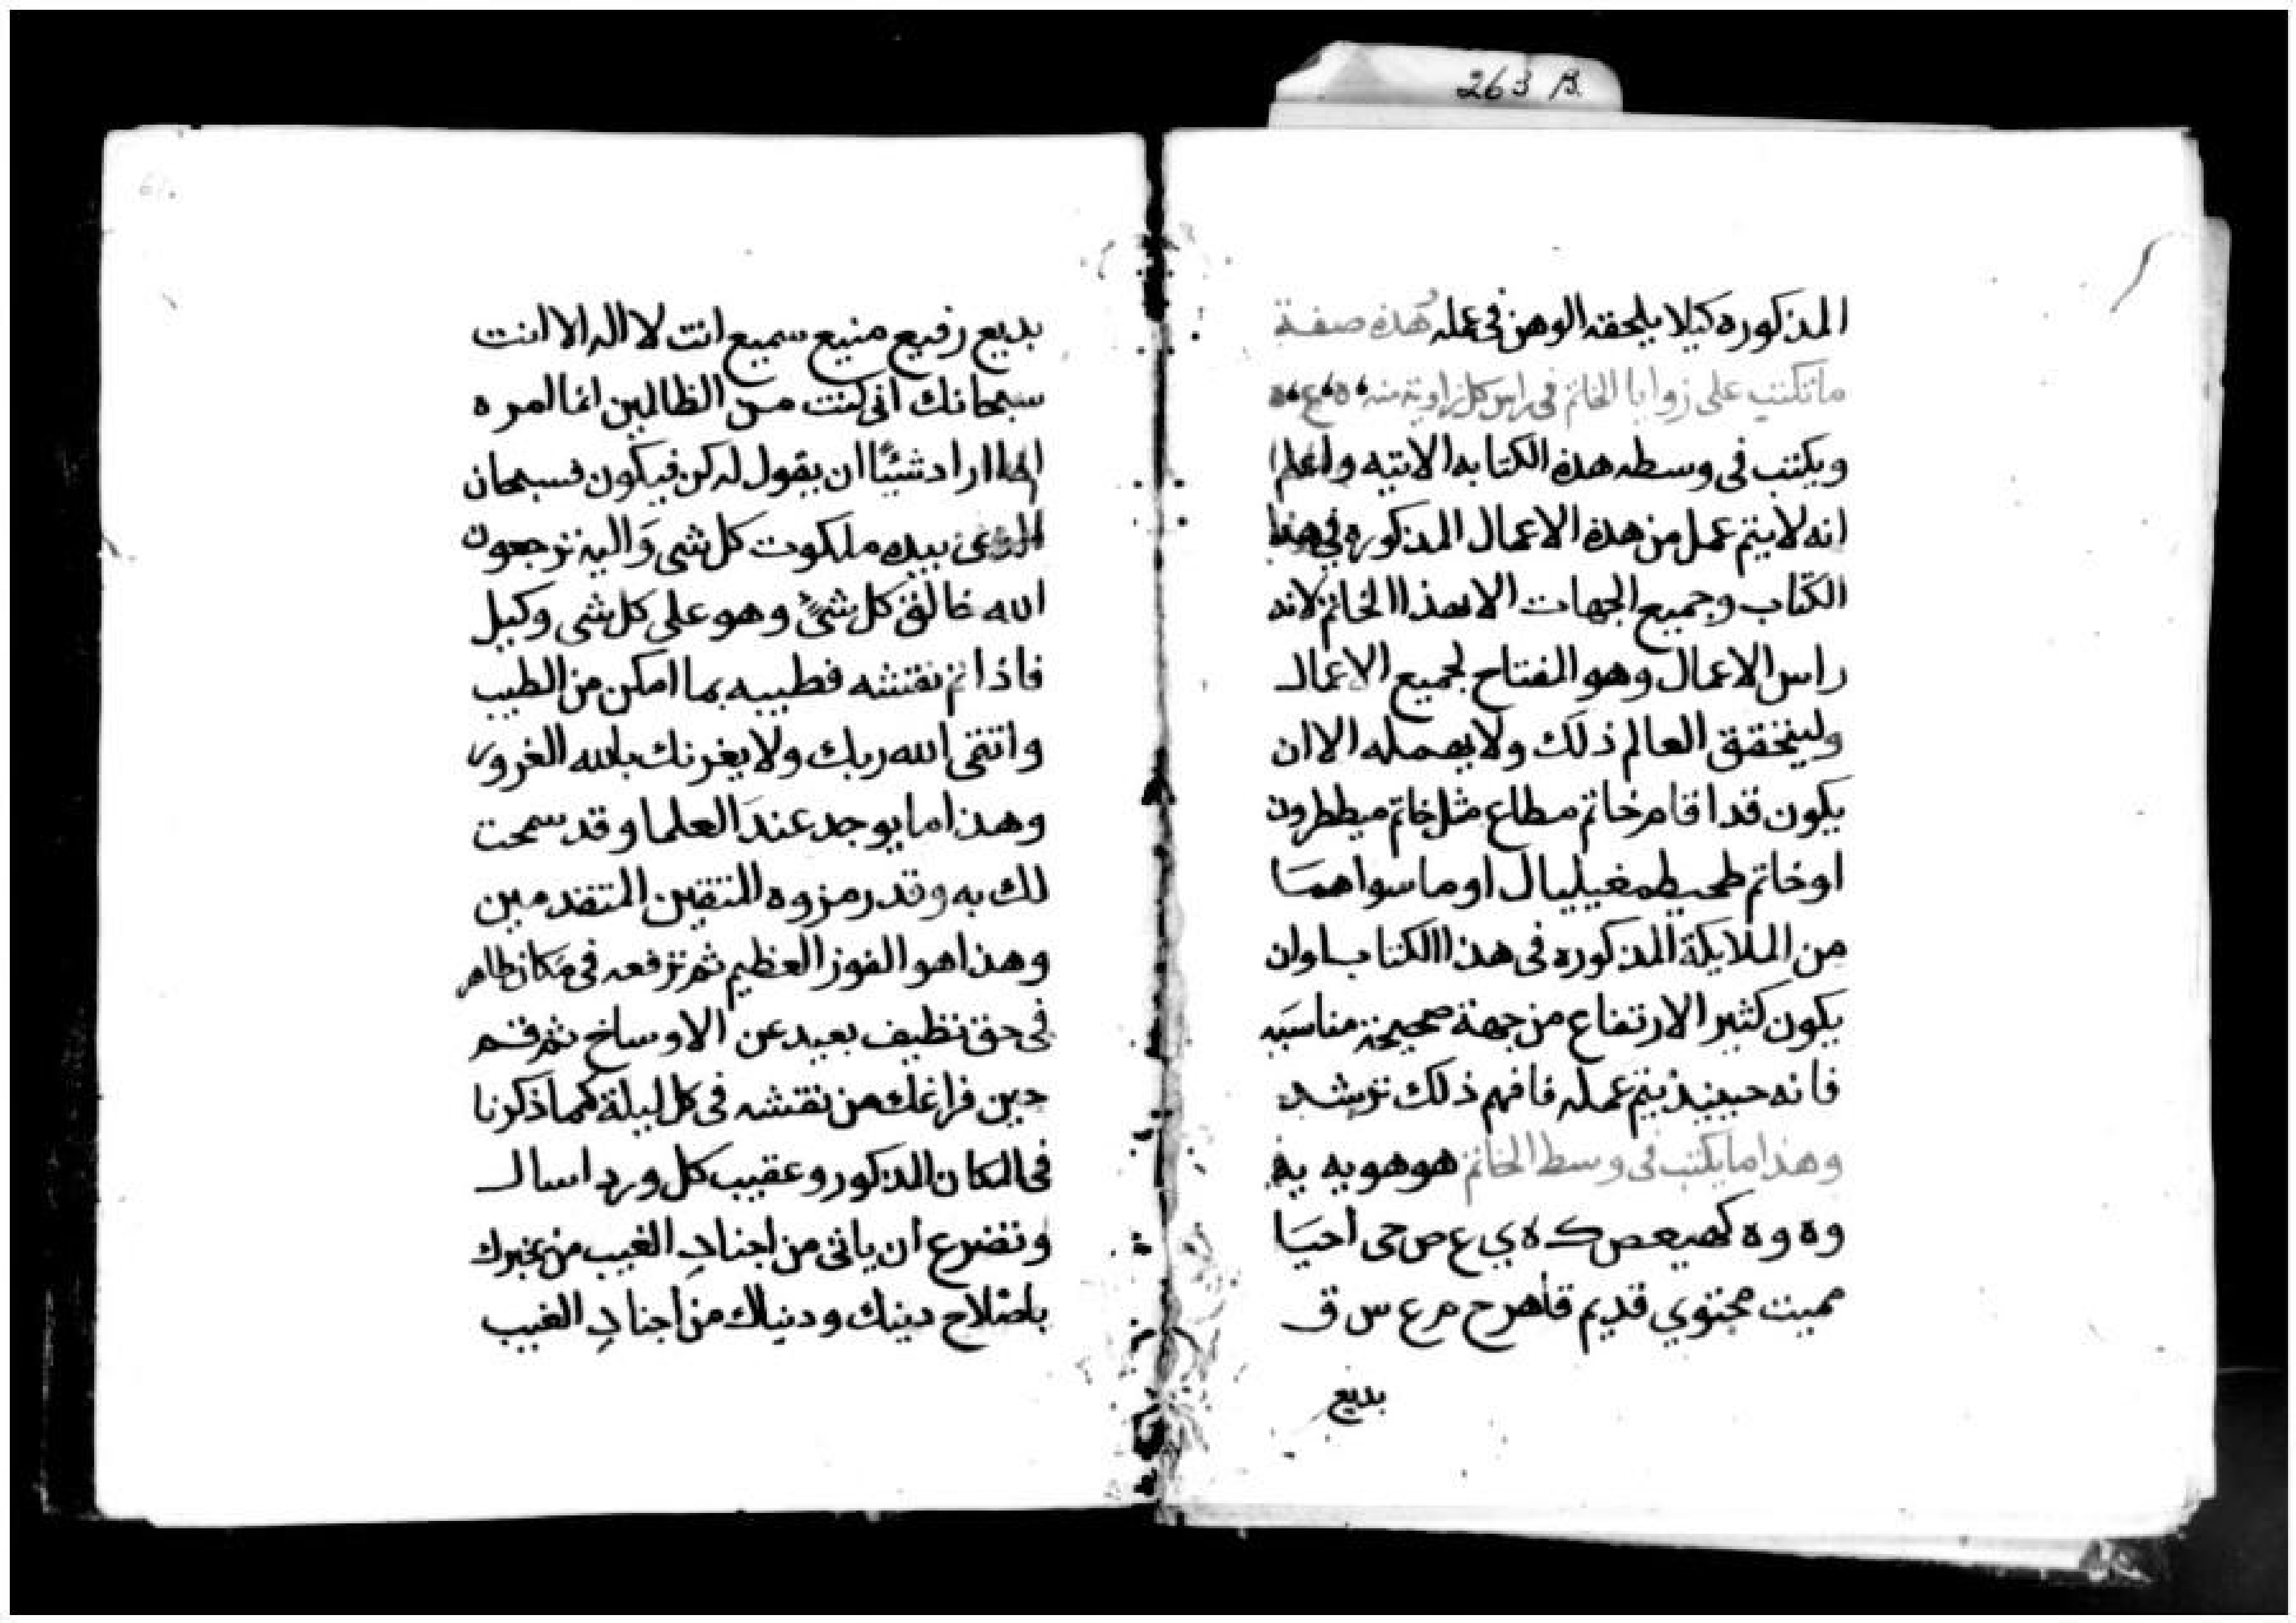 263 B.
المذكوره كيلا يلحقه الوهن في عمله هذه صفة
ما تكتب على زوايا الخاتم في راس كل زاوية منه ه ع ه
ويكتب في وسطه هذه الكتابه الاتيه واعلم
انه لا يتم عمل من هذه الاعمال المذكوره في هذا
الكتاب وجميع الجهات الا بهذا الخاتم لانه
راس الاعمال وهو المفتاح لجميع الاعمال
وليتحقق العالم ذلك ولا يهمله الا ان
يكون قد اقام خاتم مطاع مثل خاتم ميططرون
او خاتم طمحيطمغيليال او ما سواهما
من الملايكة المذكوره في هذا الكتاب اوان
يكون كثير الارتفاع من جهة صحيحة مناسبه
فانه حينيذ يتم عمله فافهم ذلك ترشد
وهذا ما يكتب في وسط الخاتم هو هو يه يه
وه وه كهيعص ك ه ي ع ص حي احيا
مميت محتوي قديم قاهر ح م ع س ق
بديع
بديع رفيع منيع سميع انت لا اله الا انت
سبحانك اني كنت من الظالمين انما امره
اذا اراد شيئا ان يقول له كن فيكون فسبحان
الذي بيده ملكوت كل شي واليه ترجعون
الله خالق كل شيً وهو على كل شي وكيل
فاذا تم نقشه فطيبه بما امكن من الطيب
واتقي الله ربك ولا يغرنك بالله الغرور
وهذا ما يوجد عند العلما وقد سمحت
لك به وقد رمزوه المتقين المتقدمين
وهذا هو الفوز العظيم ثم ترفعه في مكان طاهر
في حق نظيف بعيد عن الاوساخ ثم قم
حين فراغك من نقشه في كل ليلة كما ذكرنا
في المكان المذكور وعقيب كل ورد اسال
وتضرع ان ياتي من اجناد الغيب من يخبرك
باصلاح دينك ودنياك من اجناد الغيب